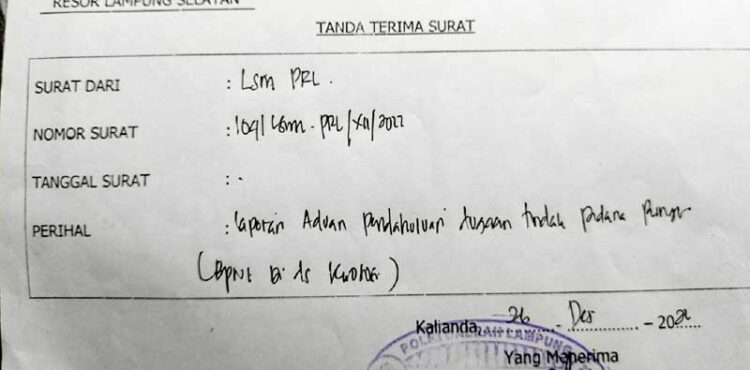 RESOR LAMPUNG SELATAN
TANDA TERIMA SURAT
SURAT DARI : Lsm PRL.
NOMOR SURAT : 109/Lsm-PRL/XII/2022
TANGGAL SURAT : -
PERIHAL : Laporan Aduan pendahuluan dugaan tindak pidana
(BPNT di ds
Kalianda, 26 Des - 202
POLRI DAERAH LAMPUNG
Yang Menerima